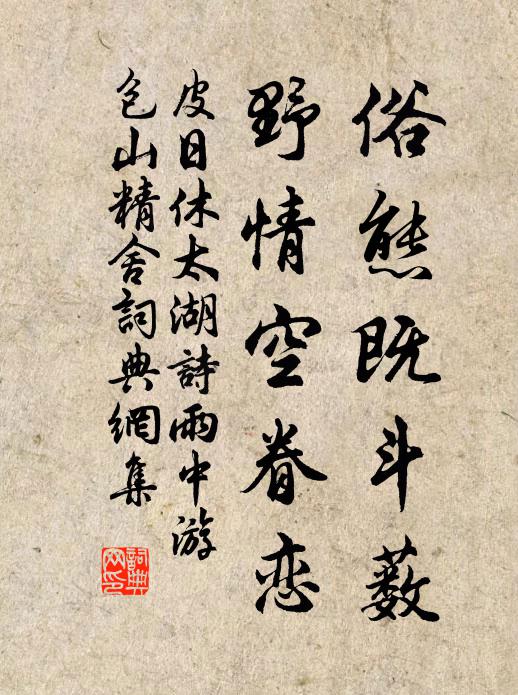 俗態既斗藪
野情空眷恋
皮日休太湖詩雨中游
包山精舍詞典網集
詞典网印